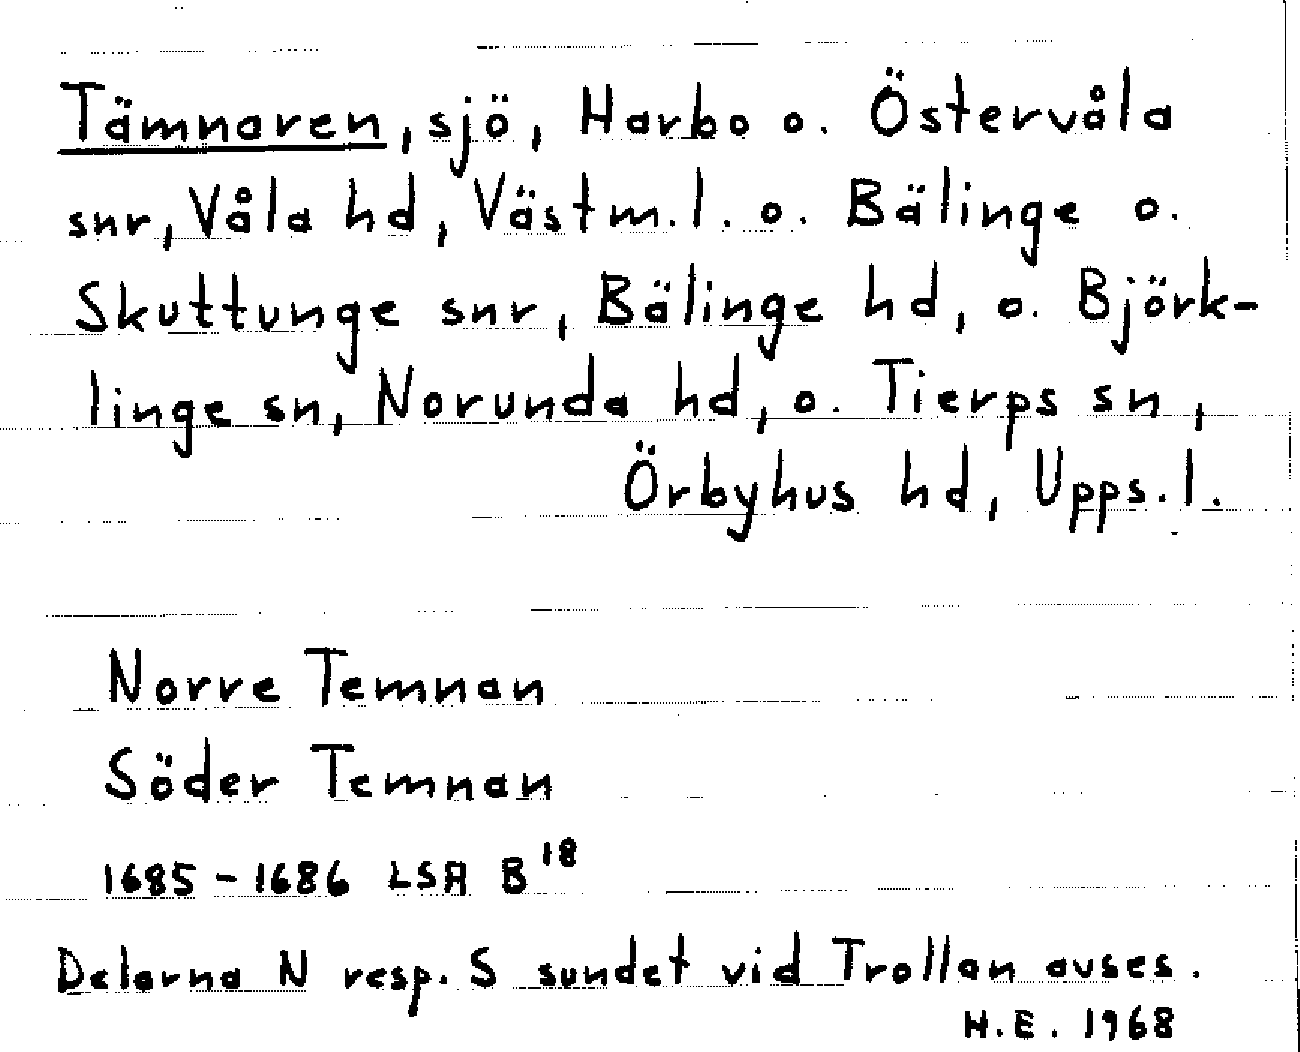 Tämnaren, sjö, Harbo o. Östervåla
snr, Våla hd, Västm. l. o. Bälinge o.
Skuttunge snr, Bälinge hd, o. Björk-
linge sn, Norunda hd, o. Tierps sn,
Örbyhus hd, Upps. l.
Norre Temnan
Söder Temnan
1685-1686 LSA B 18
Delarna N resp. S sundet vid Trollan avses.
H.E. 1968